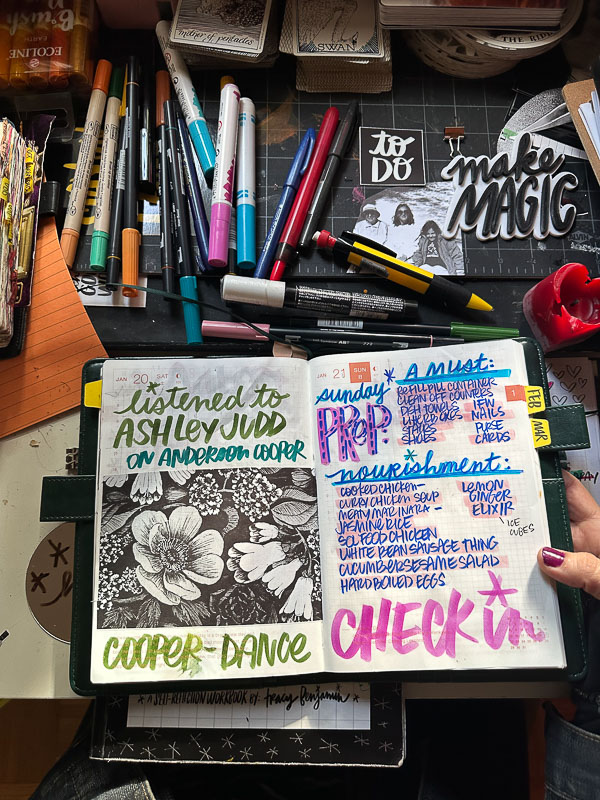 Brush
ECOLINE
EARTH
mother of pentacles
SWAN
THE RIDER
to
DO
make
MAGIC
JAN 20 SAT
*listened to
ASHLEY JUDD
ON ANDERSON COOPER
COOPER-DANCE
JAN 21 SUN
8
sunday
PREP:
* A MUST:
REFILL PILL CONTAINER
CLEAN OFF COUNTERS
DISH TOWELS
SHOES
NEW
NAILS
PURSE
CARDS
*
nourishment:
COOKED CHICKEN-
CURRY CHICKEN SOUP
MEATY MARINARA-
JASMINE RICE
SOL FOOD CHICKEN
WHITE BEAN SAUSAGE THING
CUCUMBER SESAME SALAD
HARD BOILED EGGS
LEMON
GINGER
ELIXIR
ICE
CUBES
CHECK in
1
FEB
MAR
A SELF-REFLECTION WORKBOOK BY: tracy benjamin